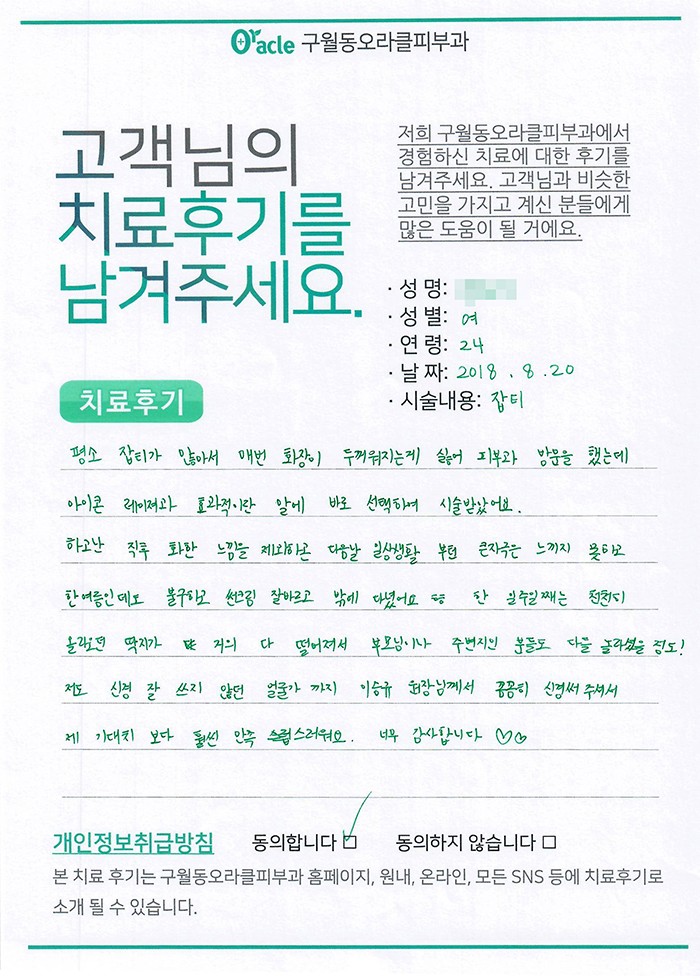 Oracle 구월동오라클피부과
고객님의
치료후기를
남겨주세요.
저희 구월동오라클피부과에서
경험하신 치료에 대한 후기를
남겨주세요. 고객님과 비슷한
고민을 가지고 계신 분들에게
많은 도움이 될 거에요.
· 성 명:
· 성 별: 여
· 연 령: 24
· 날 짜: 2018 . 8 . 20
· 시술내용: 잡티
치료후기
평소 잡티가 많아서 매번 화장이 두꺼워지는게 싫어 피부과 방문을 했는데
아이콘 레이져가 효과적이란 말에 바로 선택하여 시술받았어요.
하고난 직후 화한 느낌을 제외하곤 다음날 일상생활 부턴 큰자극은 느끼지 못하고
한여름인데도 불구하고 썬크림 잘바르고 밖에 다녔어요 한 일주일째는 천천히
올라오던 딱지가 거의 다 떨어져서 부모님이나 주변지인 분들도 다들 놀라셨을 정도!
저도 신경 잘 쓰지 않던 얼굴가 까지 이승규 원장님께서 꼼꼼히 신경써 주셔서
제 기대치 보다 훨씬 만족 스럽스러워요. 너무 감사합니다 ♡♡
개인정보취급방침 동의합니다 ☑ 동의하지 않습니다 □
본 치료 후기는 구월동오라클피부과 홈페이지, 원내, 온라인, 모든 SNS 등에 치료후기로
소개 될 수 있습니다.